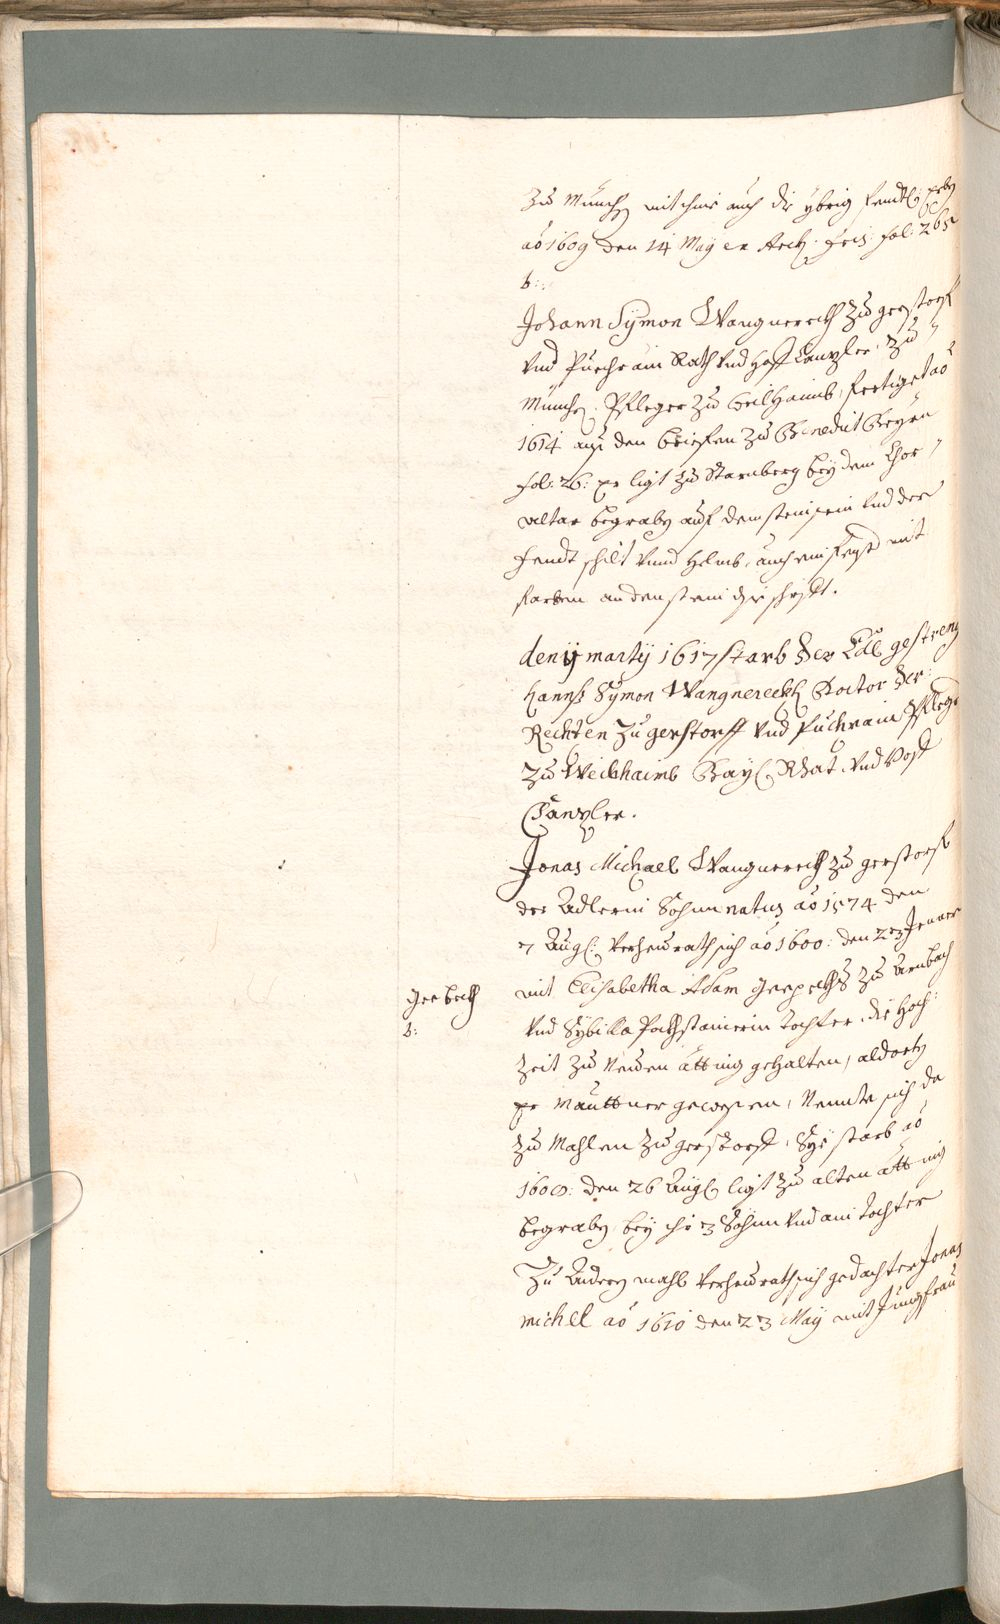 Zu Münch mit ihme auch die ybrig fendtl: erben
ao 1609 den 14 May ex Arch: Fris: fol: 265
b:
Johann Symon Wangnereckh zu gerstorf
vnd Puechrain Rath vnd Hoff Canzler, zu
Münch Pfleger zu Weilhaimb, fertiget ao
1614 aus den briefen zu Benedict Beyrn
fol: 26: er ligt zu Starnberg bey dem Chor
altar begraben auf dem stein sein vnd der
Fendt schilt vnnd Helmb, auch ein
farben an den stein
den ij martij 1617 starb der Edl gestreng
Hannß Symon Wangnereckh Doctor der
Rechten zu gerstorff vnd Puchrain Pfleger
zu Weilhaimb Bay: Rhat vnd
Canzler.
Jonas Michael Wangnereckh zu gerstorf
der Adlerin Sohnn natus ao 1574 den
7 Aug: verheurath sich ao 1600: den 23 Jenner
mit Elisabetha Adam zu Arnbach
Ger beckh
b:
vnd Sybilla Pachstainerin tochter, die Hoch
zeit zu Neuen ötting gehalten, aldorten
er Mauttner gewesen, Nennte sich da
zu Mahlen zu gerstorff, Sye starb ao
1600: den 26 Aug: ligt zu alten ötting
begraben bey ihr 3 Söhnn vnd ain tochter
Zu Andern mahl verheurath sich gedachter Jonas
michel ao 1610 den 23 May mit Jungfrau